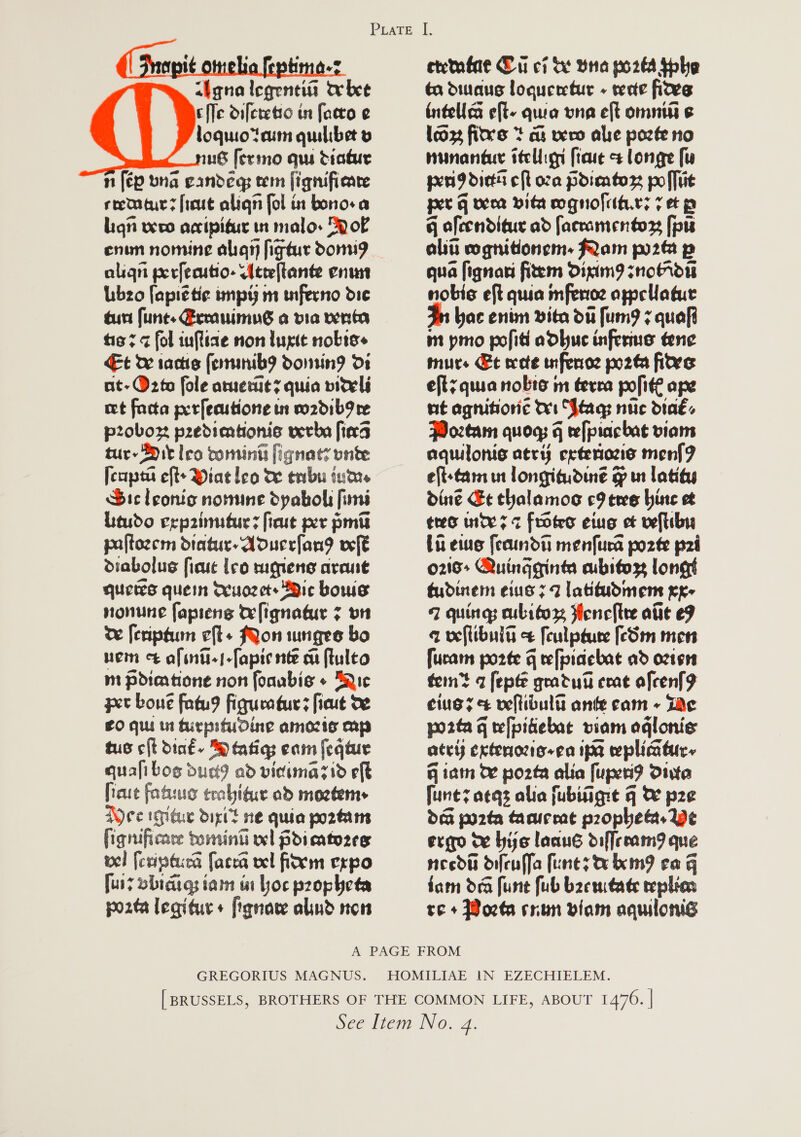 PLATE I.
Incipit omelia septima.
Magna legentiū debet
esse discretio in sacro e
loquio. Cum quilibet v
nus sermo qui dicitur
ñ sēp vnā eandēq; rem significare
credatur: sicut aliqñ sol in bono. a
liqñ vero accipitur in malo. Sol
enim nomine aliqñ sigtur domi9
aliqñ persecutio. Attestante enim
libro sapiētie impij in inferno dic
turi sunt. Errauimus a via verita
tis: ⁊ sol iusticie non luxit nobis.
Et de iactis seminib9 domin9 di
cit. Orto sole aruerūt: quia videli
cet facta persecutione in cordib9 re
proboꝝ predicationis verba sicca
tur. Sic leo dominū signat: vnde
scriptū est. Viat leo de tribu iuda.
Sic leonis nomine dyaboli simi
litudo exprimitur: sicut per pmū
pastorem dicitur. Aduersari9 vest
diabolus sicut leo rugiens circuit
querēs quem deuoret. Sic bouis
nomine sapiens designatur : vn
de scriptum est. Non iunges bo
uem ⁊ asinū. i. sapientē cū stulto
in p̄dicatione non sociabis. Sic
per bouē fatu9 figuratur: sicut de
eo qui in turpitudine amoris cap
tus est dicit. Statiq; eam seq̄tur
quasi bos duct9 ad victimā: id est
sicut fatuus trahitur ad mortem.
Hec igitur dixi: ne quia portam
significare dominū vel p̄dicatores
vel scripturā sacrā vel fidem expo
sui: vbicūq; iam in hoc propheta
porta legitur. signare aliud non
credatur Cū eī de vna porta xphe
ta diuinus loqueretur. recte fides
intellcā est. quia vna est omniū e
lcōꝝ fides : cū vero alie porte no
minantur ītelligi sicut ⁊ longe su
peri9 dictū est ora p̄dicatoꝝ possūt
per q̄ vera vita cognoscitur: et p
q̄ ascenditur ad sacramentoꝝ spū
aliū cognitionem. Nam porta p
quā signari fidem dixim9: nōdū
nobis est quia inferior appellatur
In hac enim vita dū sum9: quasi
in ymo positi adhuc inferius tene
mur. Et recte inferior porta fides
est: quia nobis in terra positis ape
rit agnitionē dei Itaq; nūc dicit.
Portam quoq; q̄ respiciebat viam
aquilonis atrij exterioris mens9
est. tam in longitudinē q̄ in latitu
dinē Et thalamos e9 tres hinc et
tres inde: ⁊ frōtes eius et vestibu
lū eius secundū mensurā porte pri
oris. Quinq̄ginta cubitoꝝ longi
tudinem eius: ⁊ latitudinem xx.
⁊ quinq; cubitoꝝ Fenestre aūt e9
⁊ vestibulū ⁊ sculpture scdm men
suram porte q̄ respiciebat ad orien
tem: ⁊ septē graduū erat ascens9
eius: ⁊ vestibulū ante eam. Hec
porta q̄ respiciebat viam aq̄lonis
atrij exterioris. ea ipā replicātur.
q̄ iam de porta alia superi9 dicta
sunt: atq; alia subiūgit q̄ de pre
dcā porta tacuerat propheta. Ut
ergo de hijs lacius disseram9 que
necdū discussa sunt: debem9 ea q̄
iam dcā sunt sub breuitate replica
re. Porta enim viam aquilonis
A PAGE FROM
GREGORIUS MAGNUS. HOMILIAE IN EZECHIELEM.
[BRUSSELS, BROTHERS OF THE COMMON LIFE, ABOUT 1476.]
See Item No. 4.